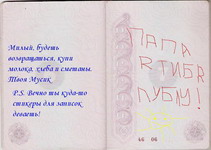 Милый, будеть
возвращаться, купи
молока, хлеба и сметаны.
Твоя Мусик
P.S. Вечно ты куда-то
стикеры для записок
деваеть!
ПАПА
Я ТИБЯ
ЛУБЛУ!